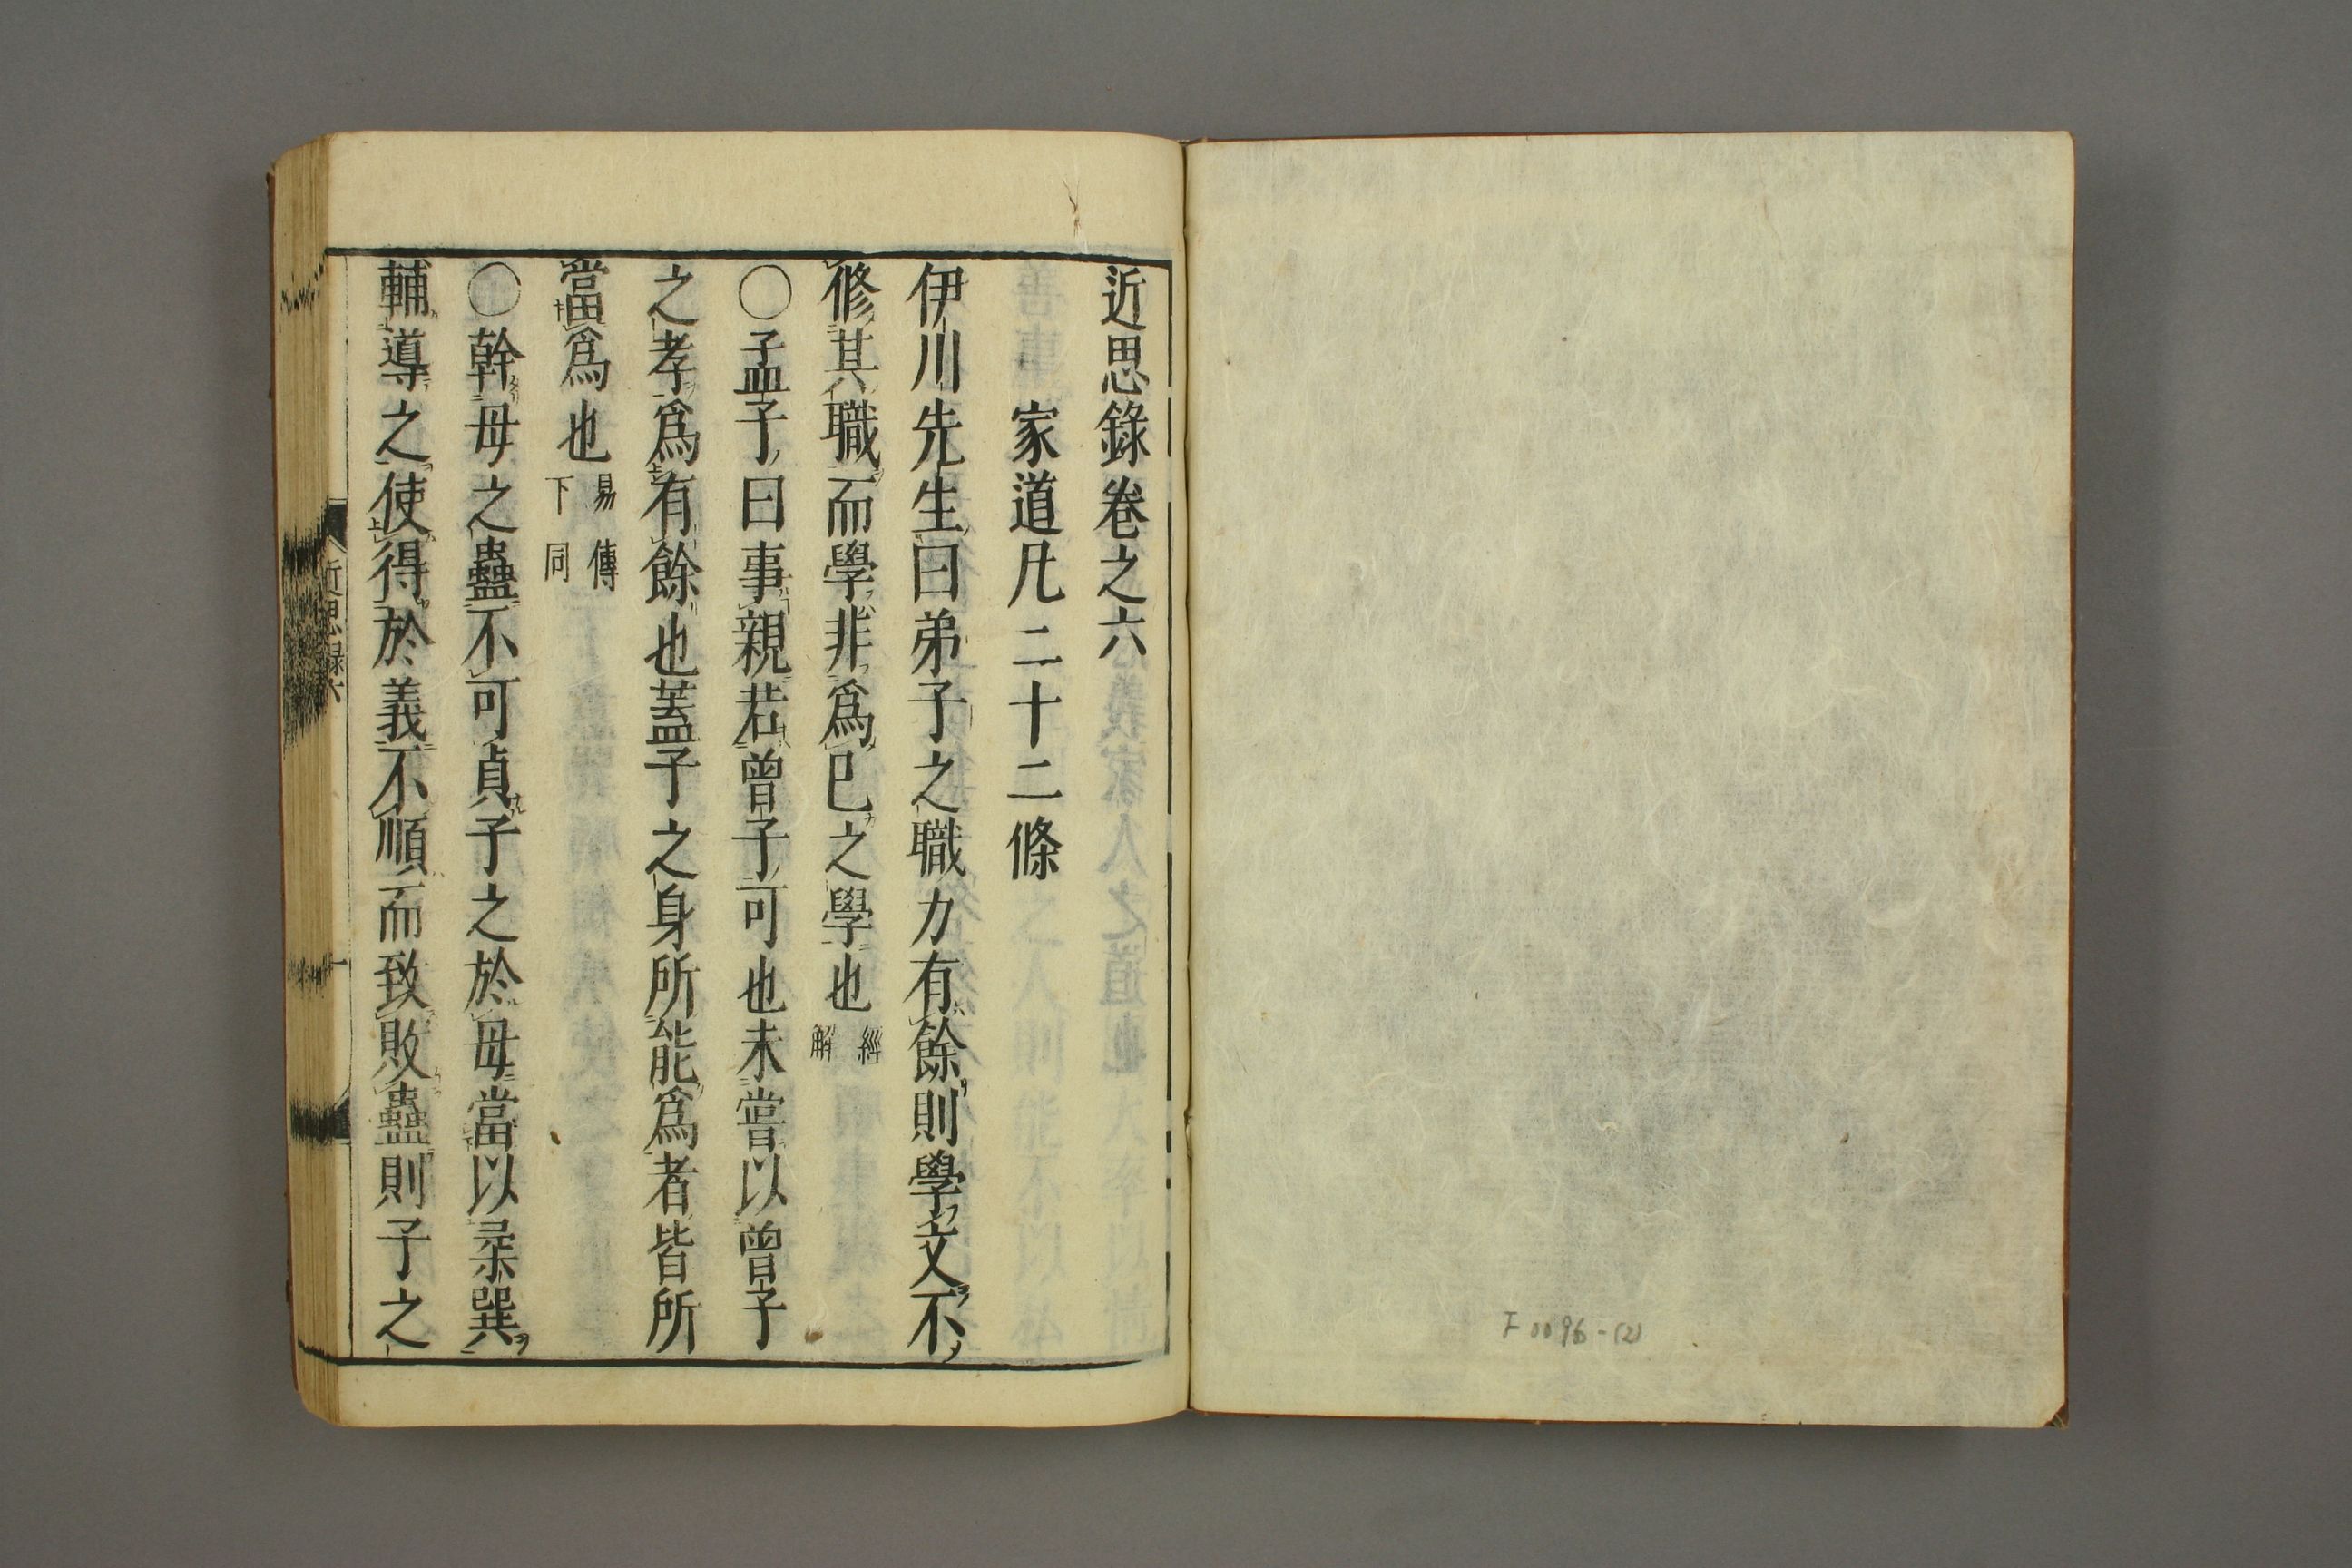 近思錄卷之六
家道凡二十二條
伊川先生曰弟子之職力有餘則學文不
修其職而學非爲己之學也經解
〇孟子曰事親若曾子可也未嘗以曾子
之孝爲有餘也蓋子之身所能爲者皆所
當爲也易傳下同
〇幹母之蠱不可貞子之於母當以柔巽
輔導之使得於義不順而致敗蠱則子之
近思録六
一
F 0096-(2)